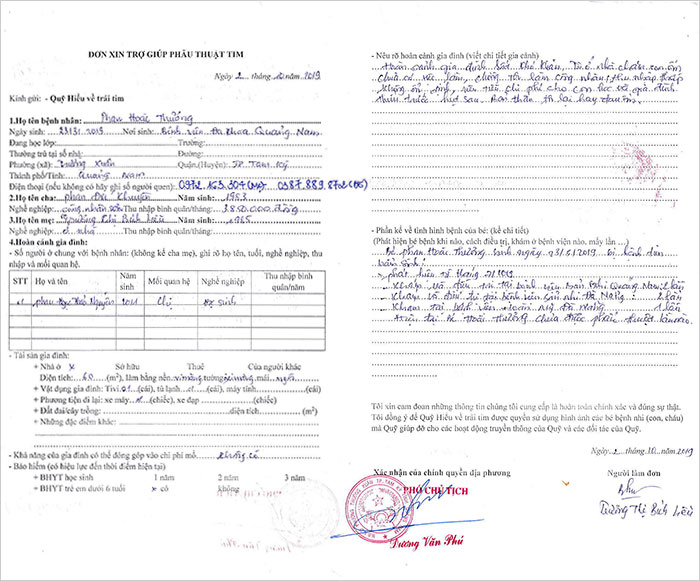 ĐƠN XIN TRỢ GIÚP PHẪU THUẬT TIM
Ngày 2 tháng 10 năm 2019
Kính gửi: - Quỹ Hiểu về trái tim
1.Họ tên bệnh nhân: Phan Hoài Thương
Ngày sinh: 23/5/2019 Nơi sinh: Bệnh viện Đa Khoa Quảng Nam
Đang học lớp: Trường:
Thường trú tại số nhà: Đường:
Phường (xã): Trường Xuân Quận (Huyện): TP Tam Kỳ
Thành phố/Tỉnh: Quảng Nam
Điện thoại (nếu không có hãy ghi số người quen): 0972.163.304 (Mẹ) 0387.889.872
2.Họ tên cha: phan Đức Khuyên Năm sinh: 1983
Nghề nghiệp: công nhân sơn Thu nhập bình quân/tháng: 3.850.000 đồng
3.Họ tên mẹ: Trương Thị Bích Liễu Năm sinh: 1985
Nghề nghiệp: ở nhà Thu nhập bình quân/tháng:
4.Hoàn cảnh gia đình:
- Số người ở chung với bệnh nhân: (không kể cha mẹ), ghi rõ họ tên, tuổi, nghề nghiệp, thu
nhập và mối quan hệ.
STT Họ và tên Năm sinh Mối quan hệ Nghề nghiệp Thu nhập bình quân/năm
phan Ngọc Thảo Nguyên Chị học sinh
- Tài sản gia đình:
+ Nhà ở x Sở hữu Thuê Của người khác
Diện tích: 60 (m²), làm bằng nền xi măng tường xi măng mái ngói
+ Vật dụng gia đình: Tivi 01 (cái), tủ lạnh (cái), máy tính (cái)
+ Phương tiện đi lại: xe máy (chiếc), xe đạp (chiếc)
+ Đất đai/cây trồng: diện tích (m²)
+ Những đặc điểm khác:
- Khả năng của gia đình có thể đóng góp vào chi phí mổ: không có
- Bảo hiểm (có hiệu lực đến thời điểm hiện tại)
+ BHYT học sinh 1 năm 2 năm 3 năm
+ BHYT trẻ em dưới 6 tuổi x có không
- Nêu rõ hoàn cảnh gia đình (viết chi tiết gia cảnh)
Hoàn cảnh gia đình rất khó khăn, Tôi ở nhà chăm con ốm
chưa có việc làm, chồng tôi làm công nhân, thu nhập thấp
không ổn định, nên tiền chi phí cho con học và gia đình
thiếu trước hụt sau. Bản thân tôi lại hay đau ốm.
- Phần kể về tình hình bệnh của bé: (kể chi tiết)
(Phát hiện bé bệnh khi nào, cách điều trị, khám ở bệnh viện nào, mấy lần ...)
Bé phan Hoài Thương sinh ngày 23/5/2019 bị bệnh
bẩm sinh
phát hiện từ tháng 7/2019
- Khám và điều trị tại bệnh viện Sản Nhi Quảng Nam 2 lần
- Khám và điều trị tại bệnh viện sản nhi Đà Nẵng: 2 lần
- Khám tại bệnh viện Đà Nẵng 1 lần
- Hiện tại bé Hoài Thương chưa được phẫu thuật lần nào.
Tôi xin cam đoan những thông tin chúng tôi cung cấp là hoàn toàn chính xác và đúng sự thật.
Tôi đồng ý để Quỹ Hiểu về trái tim được quyền sử dụng hình ảnh các bé bệnh nhi (con, cháu)
mà Quỹ giúp đỡ cho các hoạt động truyền thông của Quỹ và các đối tác của Quỹ.
Ngày 2 tháng 10 năm 2019
Xác nhận của chính quyền địa phương Người làm đơn
PHÓ CHỦ TỊCH
Dương Văn Phú
Trương Thị Bích Liễu